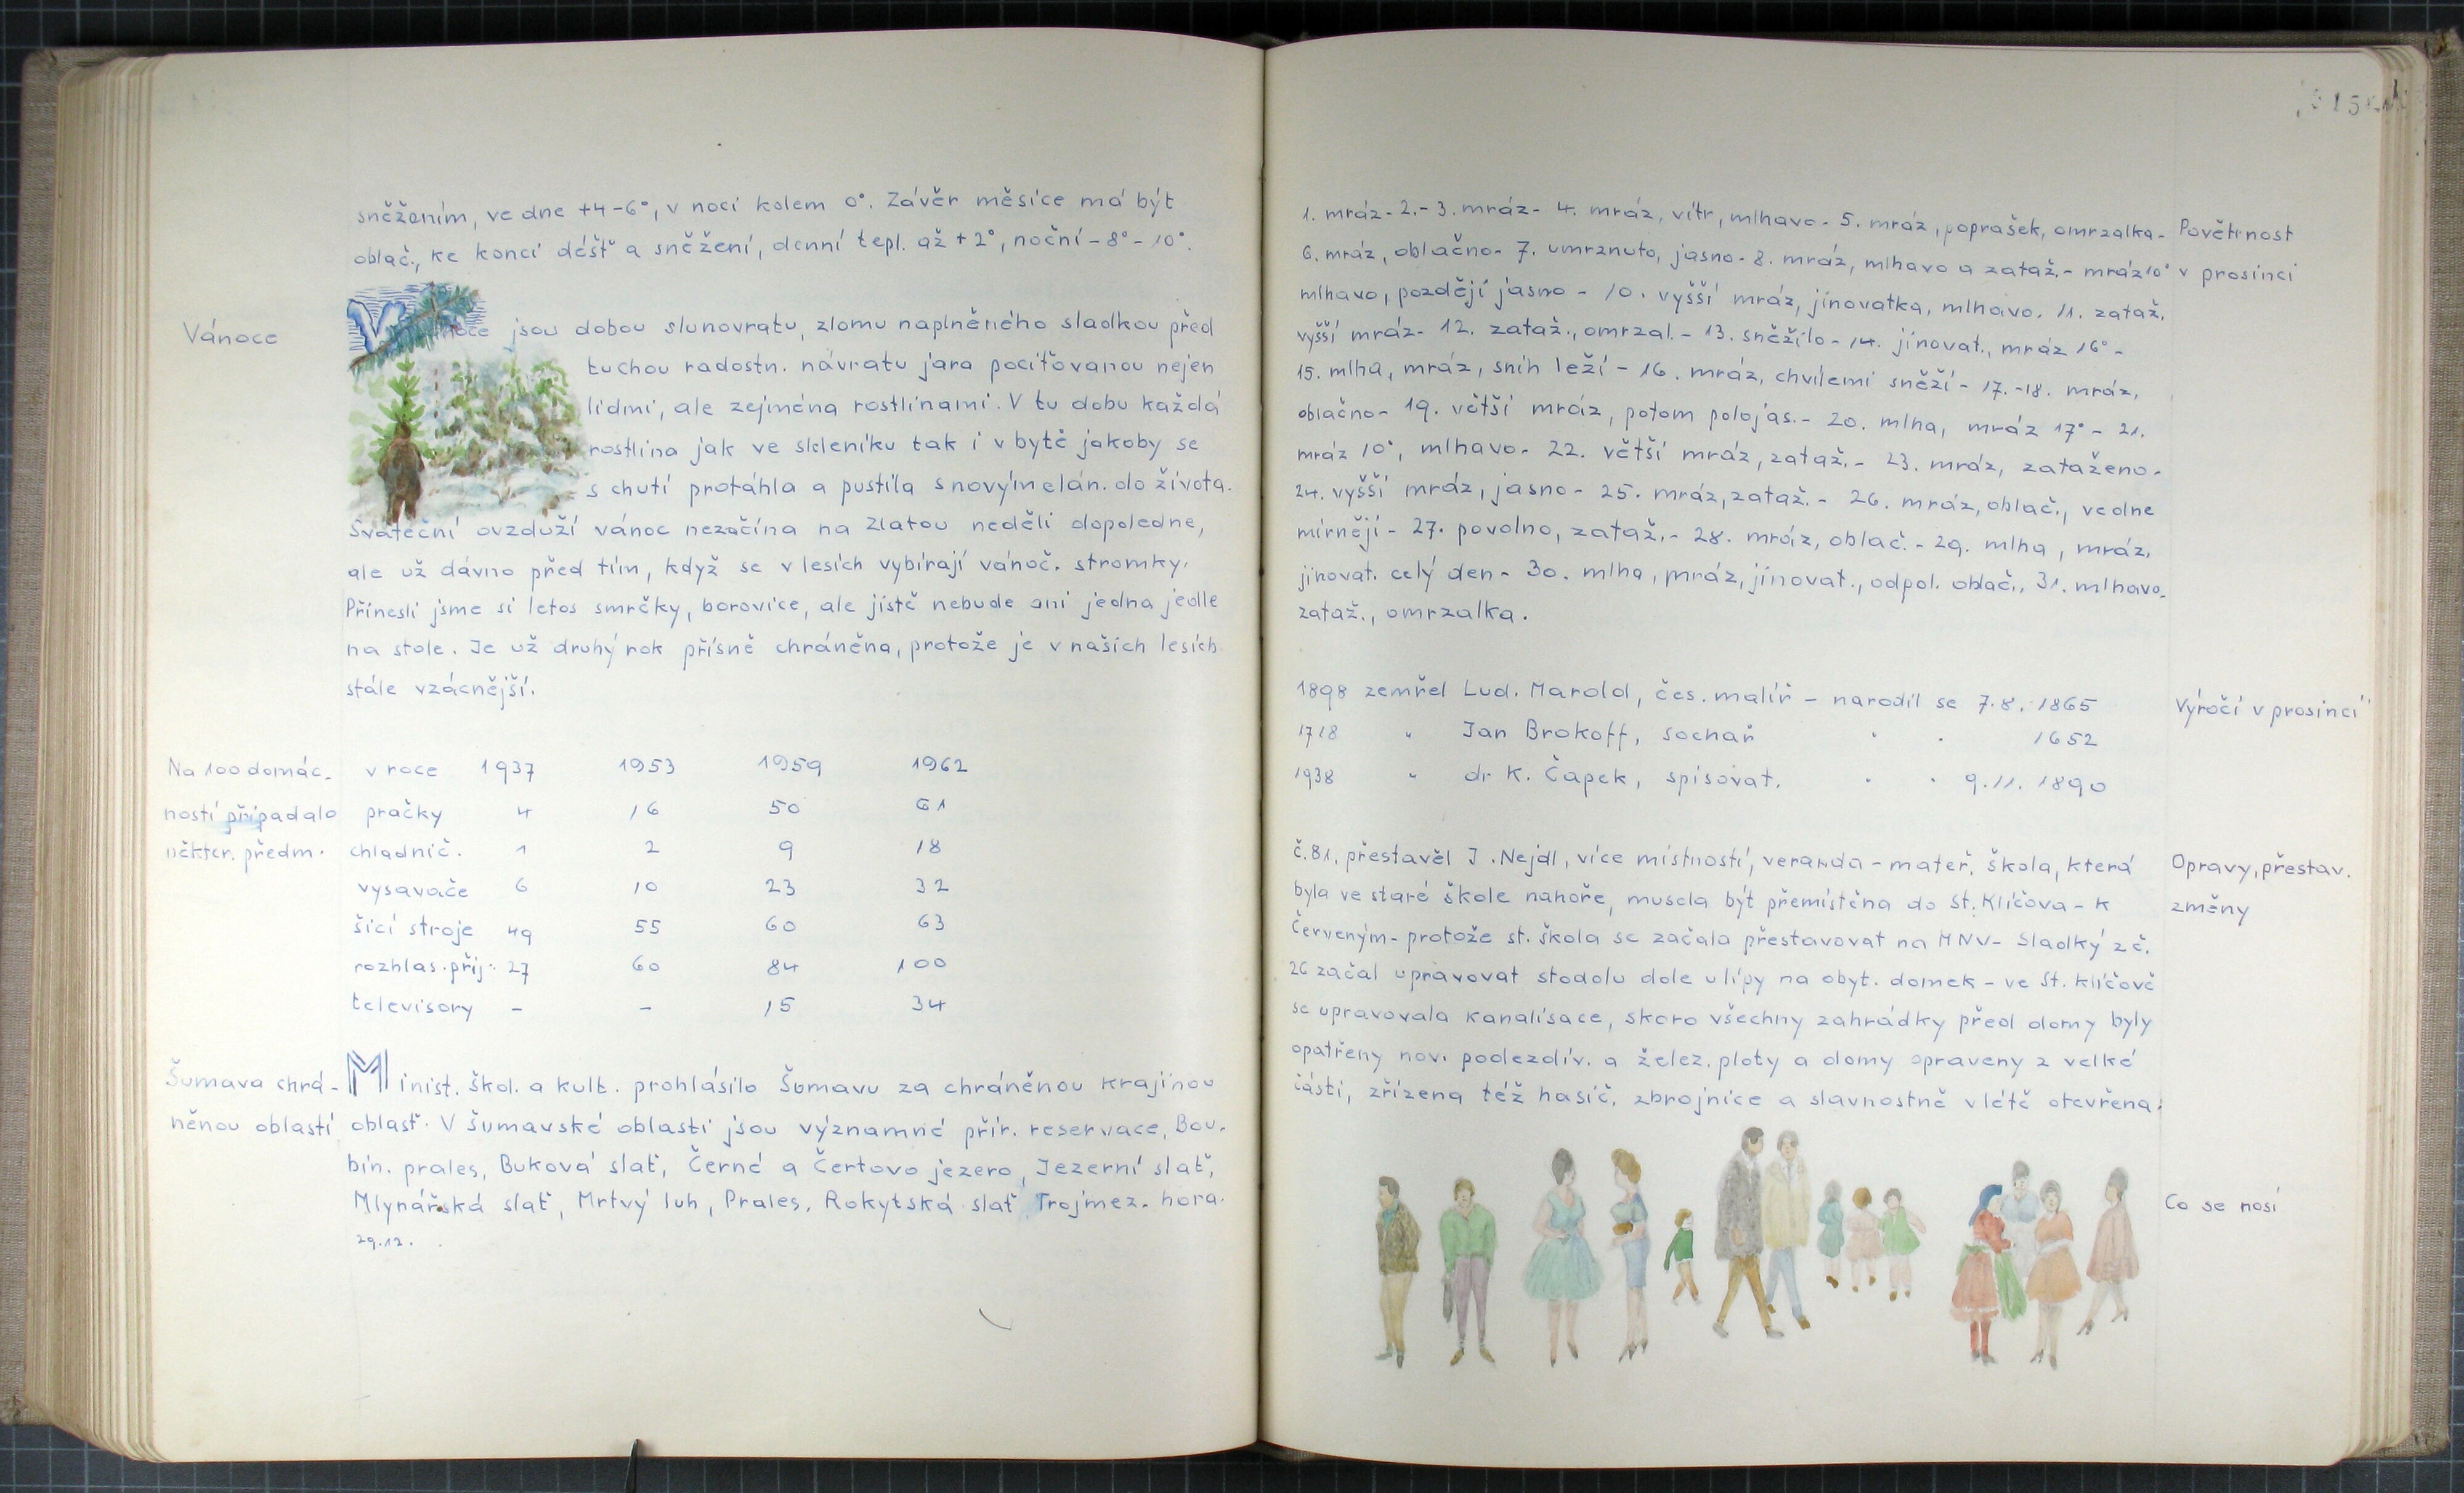 sněžením, ve dne +4-6°, v noci kolem 0°. Závěr měsíce má být
oblač., ke konci déšť a sněžení, denní tepl. až +2°, noční -8°-10°.
Vánoce
Vánoce jsou dobou slunovratu, zlomu naplněného sladkou před
tuchou radostn. návratu jara pociťovanou nejen
lidmi, ale zejména rostlinami. V tu dobu každá
rostlina jak ve skleníku tak i v bytě jakoby se
s chutí protáhla a pustila s novým elán. do života.
Sváteční ovzduží vánoc nezačíná na Zlatou neděli dopoledne,
ale už dávno před tím, když se v lesích vybírají vánoč. stromky.
Přinesli jsme si letos smrčky, borovice, ale jistě nebude ani jedna jedle
na stole. Je už druhý rok přísně chráněna, protože je v našich lesích
stále vzácnější.
Na 100 domác- v roce 1937 1953 1959 1962
ností připadalo pračky 4 16 50 61
někter. předm. chladnič. 1 2 9 18
vysavače 6 10 23 32
šicí stroje 49 55 60 63
rozhlas. přij. 27 60 84 100
televisory - - 15 34
Šumava chrá-
něnou oblastí
Minist. škol. a kult. prohlásilo Šumavu za chráněnou krajinou
oblast. V šumavské oblasti jsou významné přír. reservace, Bou-
bín. prales, Buková slať, Černé a Čertovo jezero, Jezerní slať,
Mlynářská slať, Mrtvý luh, Prales, Rokytská slať, Trojmez. hora.
29.12.
1. mráz- 2.- 3. mráz- 4. mráz, vítr, mlhavo- 5. mráz, poprašek, omrzalka- Povětrnost
6. mráz, oblačno- 7. umrznuto, jasno- 8. mráz, mlhavo a zataž.- mráz 10° v prosinci
mlhavo, později jasno - 10. vyšší mráz, jinovatka, mlhavo. 11. zataž.
vyšší mráz- 12. zataž., omrzal.- 13. sněžilo- 14. jinovat., mráz 16°-
15. mlha, mráz, sníh leží - 16. mráz, chvílemi sněží - 17.-18. mráz,
oblačno- 19. větší mráz, potom polojas.- 20. mlha, mráz 17° - 21.
mráz 10°, mlhavo- 22. větší mráz, zataž.- 23. mráz, zataženo-
24. vyšší mráz, jasno- 25. mráz, zataž.- 26. mráz, oblač., ve dne
mírněji- 27. povolno, zataž.- 28. mráz, oblač.- 29. mlha, mráz,
jinovat. celý den- 30. mlha, mráz, jinovat., odpol. oblač., 31. mlhavo,
zataž., omrzalka.
1898 zemřel Lud. Marold, čes. malíř - narodil se 7.8. 1865 Výročí v prosinci
1718 " Jan Brokoff, sochař " " 1652
1938 " dr K. Čapek, spisovat. " " 9.11. 1890
č.81. přestavěl J. Nejdl, více místností, veranda - mateř. škola, která Opravy, přestav.
byla ve staré škole nahoře, musela být přemístěna do St. Klíčova - k změny
Červeným- protože st. škola se začala přestavovat na MNV- Sladký z č.
26 začal upravovat stodolu dole u lípy na obyt. domek - ve St. Klíčově
se upravovala kanalisace, skoro všechny zahrádky před domy byly
opatřeny nov. podezdív. a želez. ploty a domy opraveny z velké
části, zřízena též hasič. zbrojnice a slavnostně v létě otevřena.
Co se nosí